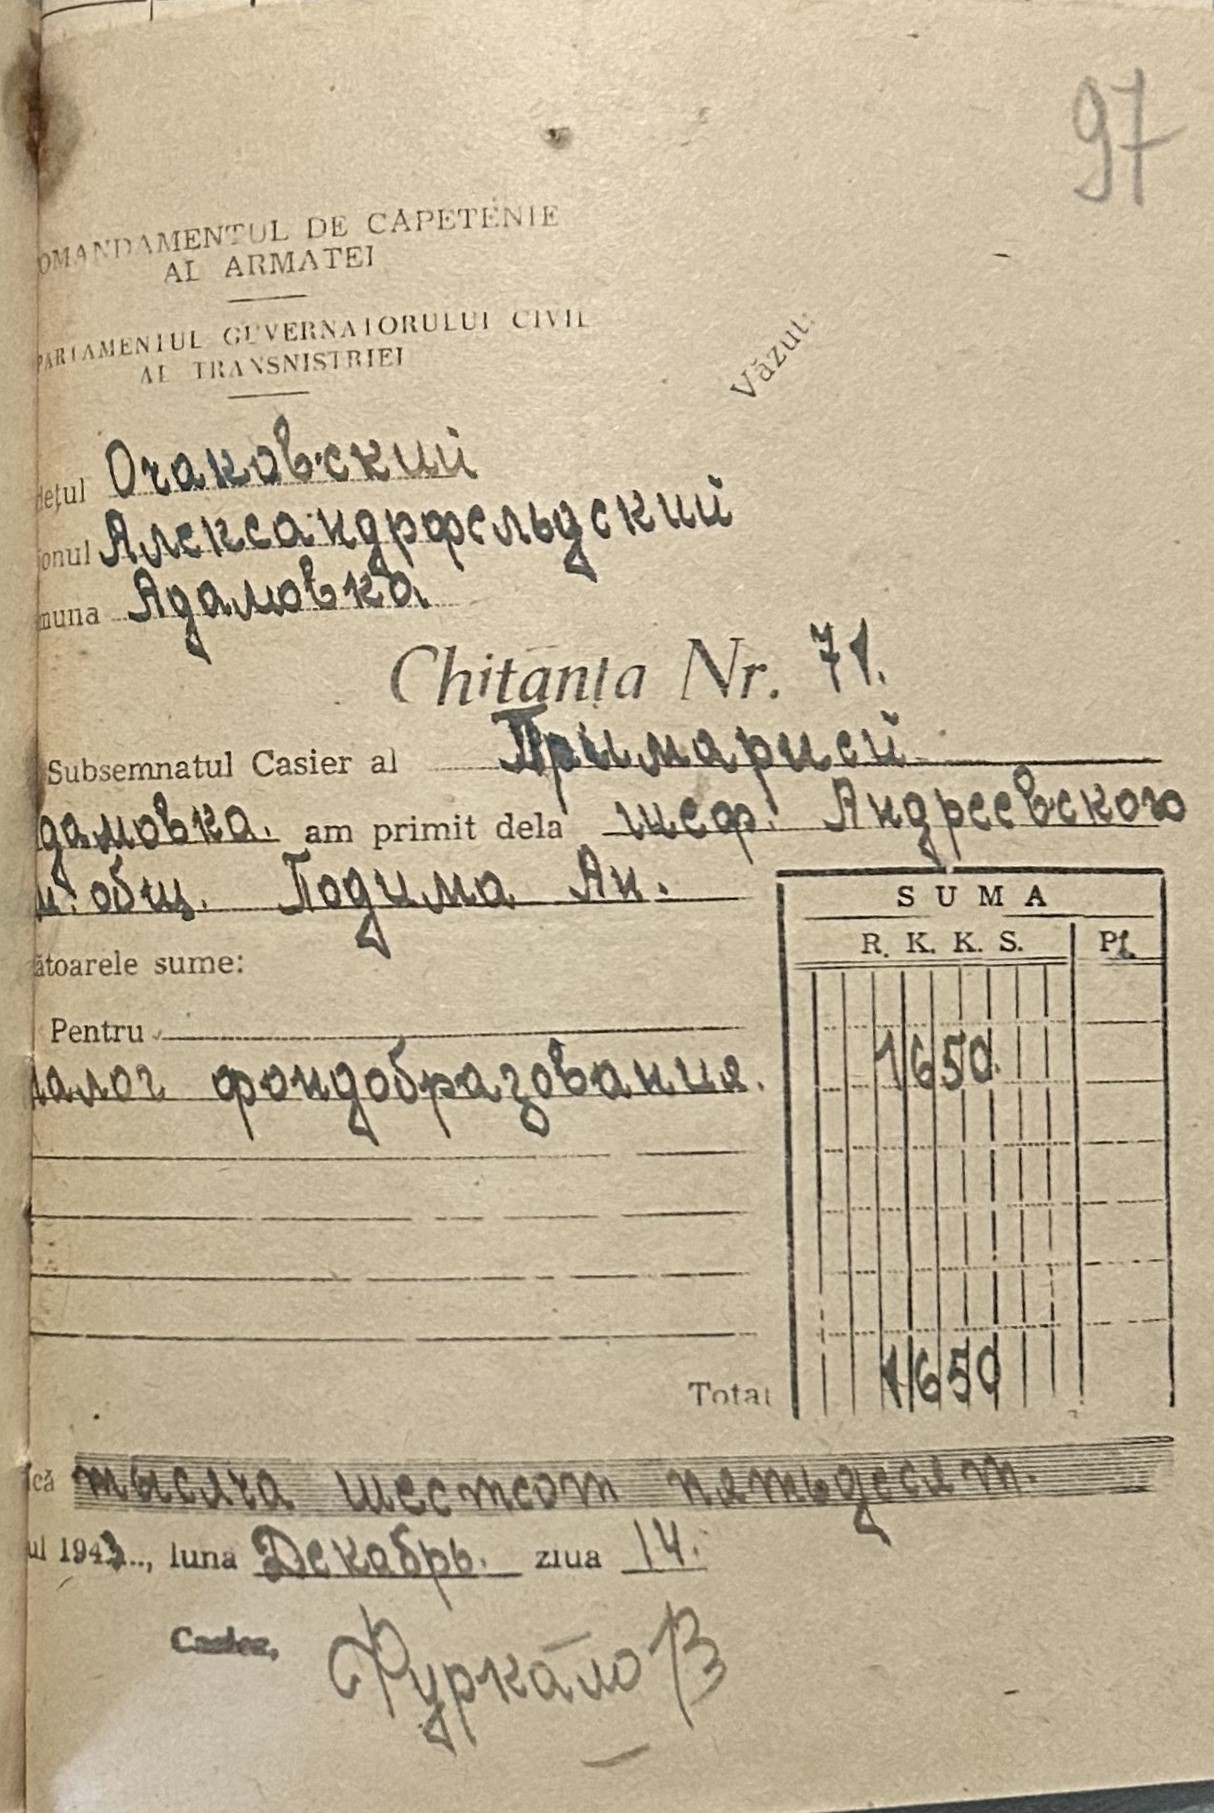 97
OMANDAMENTUL DE CAPETENIE
AL ARMATEI
PARTAMENTUL GUVERNATORULUI CIVIL
AL TRANSNISTRIEI
Văzut:
dețul Очаковский
ionul Александрфельдский
muna Адамовка
Chitanța Nr. 71.
Subsemnatul Casier al Примарисй
дамовка. am primit dela шеф. Андреевского
м. общ. Подима Ан.
SUMA
R. K. K. S. Pf.
ătoarele sume:
Pentru
налог фондобразования. 1650.
Total 1650
ică тысяча шестсот пятьдесят.
ul 1943.., luna Декабрь. ziua 14.
Casier, Фуркало В